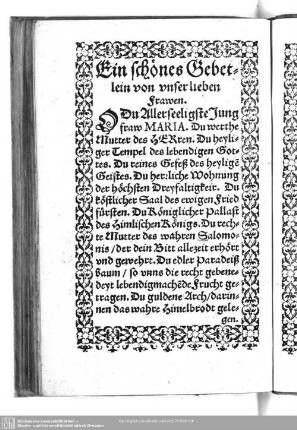 Ein schönes Gebet-
lein von vnser lieben
Frawen.
O Du Allerseeligste Jung
fraw MARIA. Du werthe
Mutter des HERren. Du heyli-
ger Tempel des lebendigen Got-
tes. Du reines Gefeß des heylige
Geistes. Du herzliche Wohnung
der höchsten Dreyfaltigkeit. Du
köstlicher Saal des ewigen Fried
fürsten. Du Königlicher Pallast
des Himlischen Königs. Du rech-
te Mutter des wahren Salomo-
nis / der dein Bitt allezeit erhört
vnd gewehrt. Du edler Paradeiß
baum / so vnns die recht gebene-
deyt lebendigmachēde Frucht ge-
tragen. Du guldene Arch / darin-
nen das wahr Himelbrodt gele-
gen.